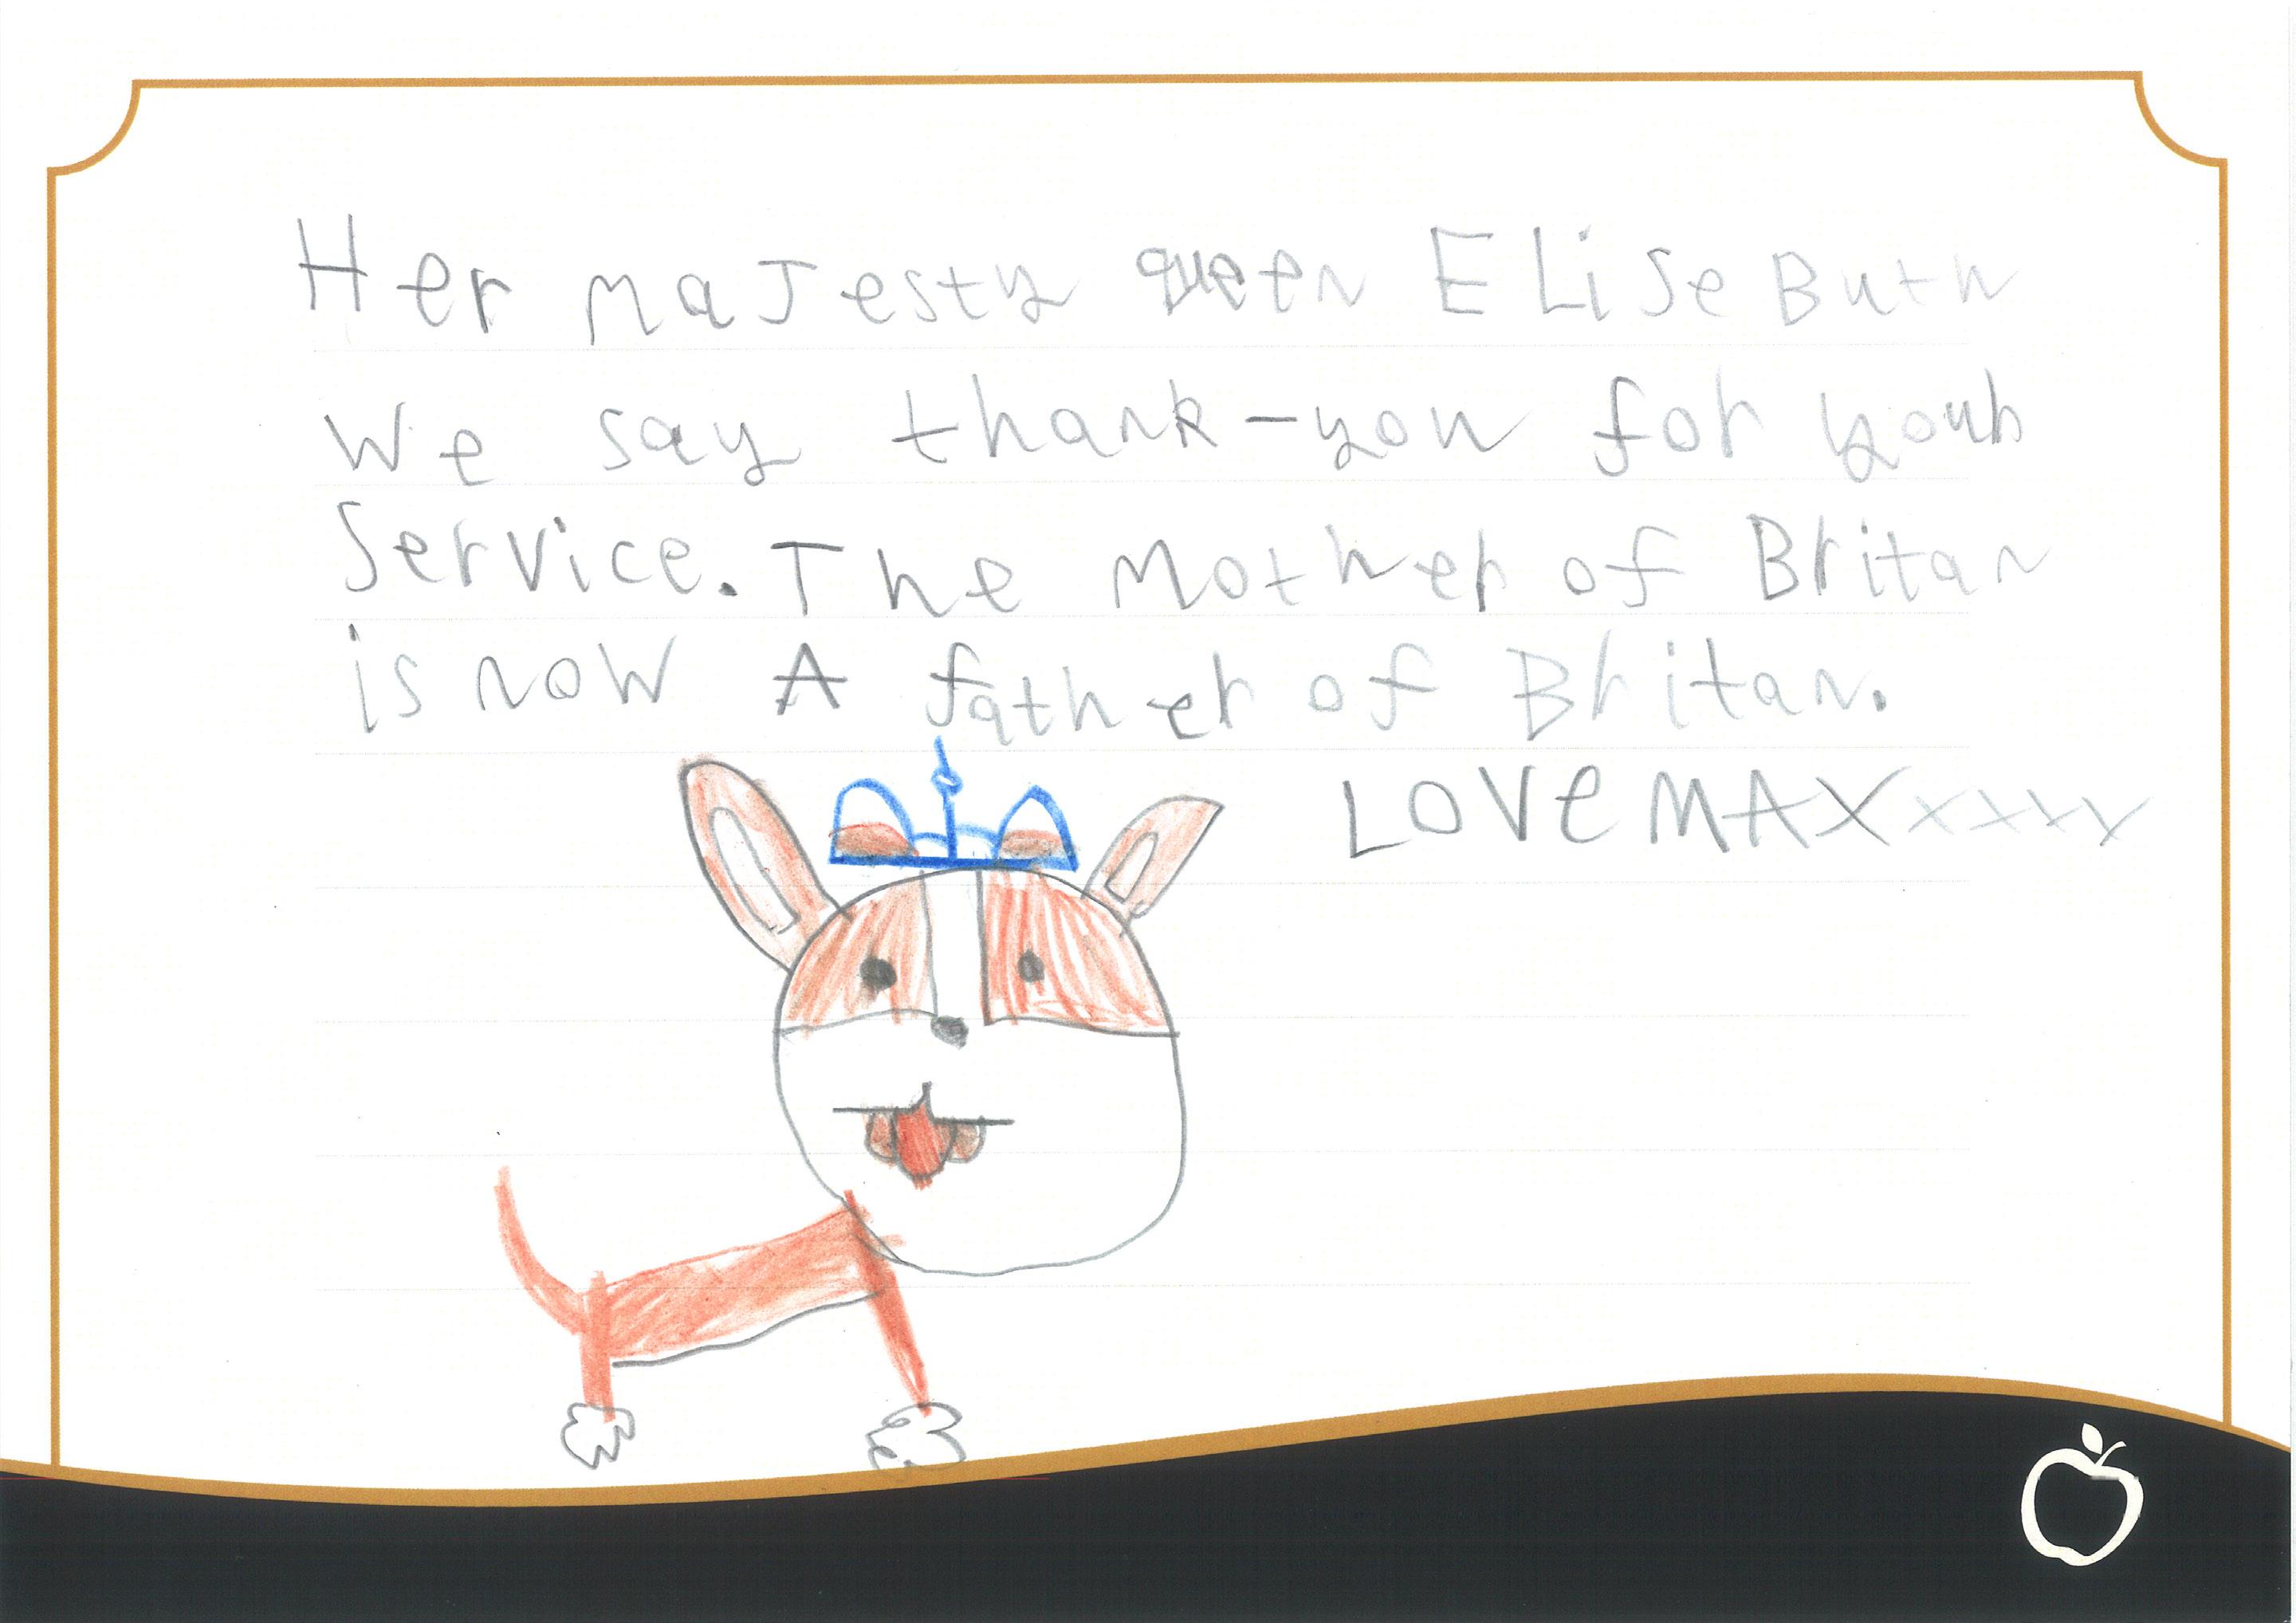 Her maJesty queen ELiseButh
We say thank-you for your
Service. The Mother of Britan
is now A father of Britan.
LOVe MAX xxxx